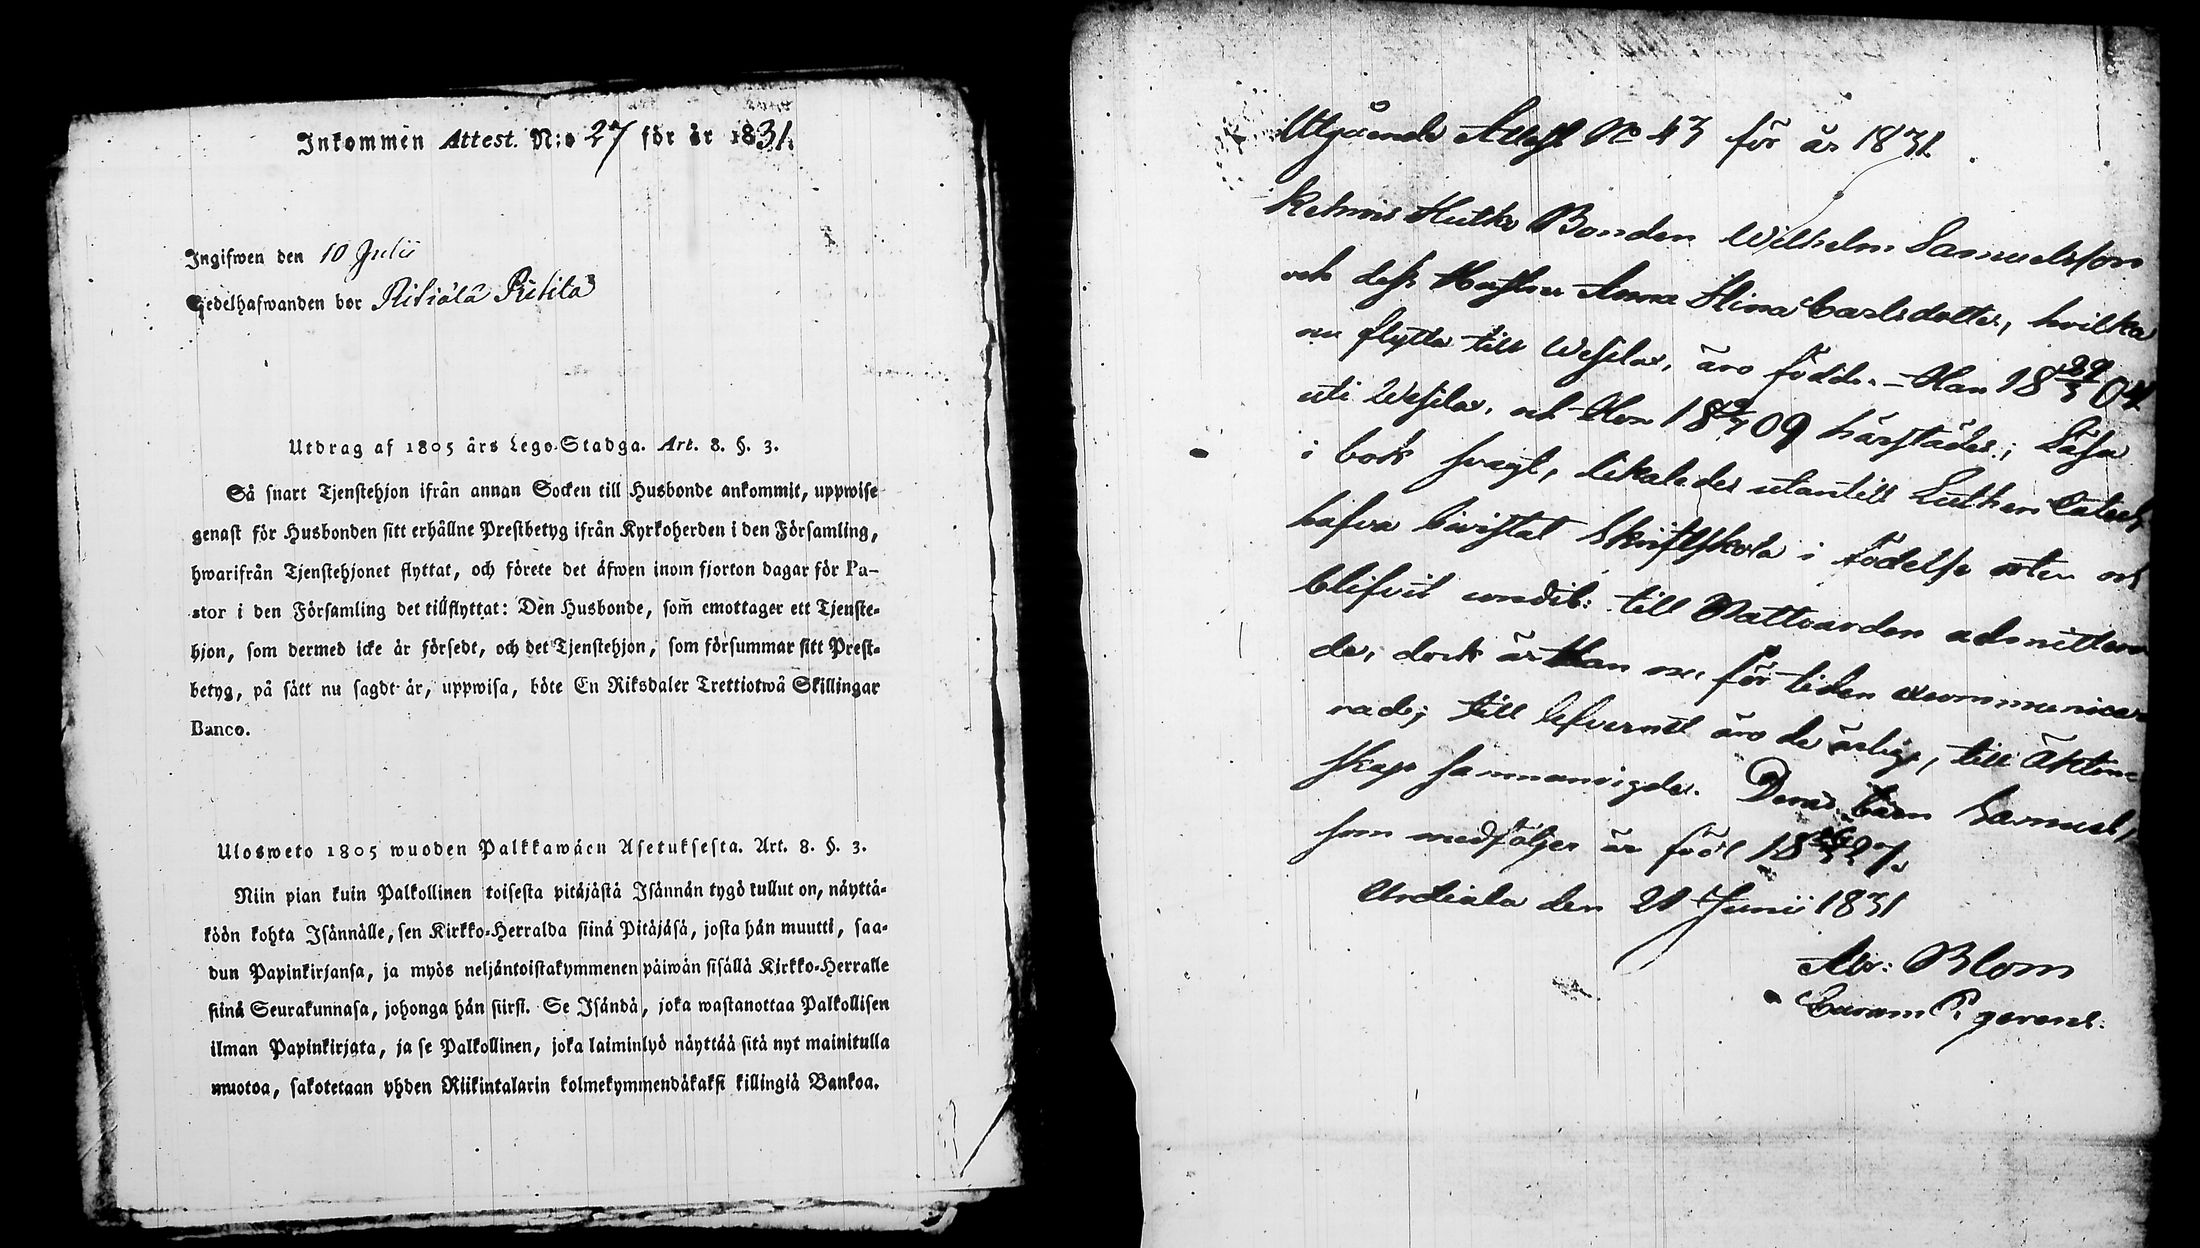 Inkommen Attest. N:o 27 för år 1831.
Ingifwen den 10 Julii
Sedelhafwanden bor
Utdrag af 1805 års Lego-Stadga. Art. 8. §. 3.
Så snart Tjenstehjon ifrån annan Socken till Husbonde ankommit, uppwise
genast för Husbonden sitt erhållne Prestbetyg ifrån Kyrkoherden i den Församling,
hwarifrån Tjenstehjonet flyttat, och förete det äfwen inom fjorton dagar för Pa-
stor i den Församling det tillflyttat: Den Husbonde, som̃ emottager ett Tjenste-
hjon, som dermed icke är försedt, och det Tjenstehjon, som försummar sitt Prest-
betyg, på sätt nu sagdt är, uppwisa, böte En Riksdaler Trettiotwå Skillingar
Banco.
Ulosweto 1805 wuoden Palkkawäen Asetuksesta. Art. 8. §. 3.
Niin pian kuin Palkollinen toisesta pitäjästä Isännän tygö tullut on, näyttä-
köön kohta Isännälle, sen Kirkko-Herralda siinä Pitäjäsä, josta hän muutti, saa-
dun Papinkirjansa, ja myös neljäntoistakymmenen päiwän sisällä Kirkko-Herralle
siinä Seurakunnasa, johonga hän siirsi. Se Isändä, joka wastanottaa Palkollisen
ilman Papinkirjata, ja se Palkollinen, joka laiminlyö näyttää sitä nyt mainitulla
muotoa, sakotetaan yhden Riikintalarin kolmekymmendäkaksi killingiä Bankoa.
Utgående Attest No 43 för år 1831.
Bonden Wilhelm Samuelsson
och dess Hustru Anna Stina Carlsdotter, hvilka
nu flytta till Wesilax, äro födde. – Han 18 29/3 04
uti Wesilax, och Hon 18 09 härstädes; Läsa
i bok svagt, likaledes utantill Luthers Catech
hafva bivistat Skriftskola i födelse orten och
blifvit condit: till Nattvarden admittera
de, dock är Han nu för tiden excommunice-
rad; till lefvernet äro de ärlige, till Äkten-
skap sammanvigde. Deras barn Samuel,
som medföljer är född 18 27.
Urdiala den 21 Junii 1831
Abr: Blom